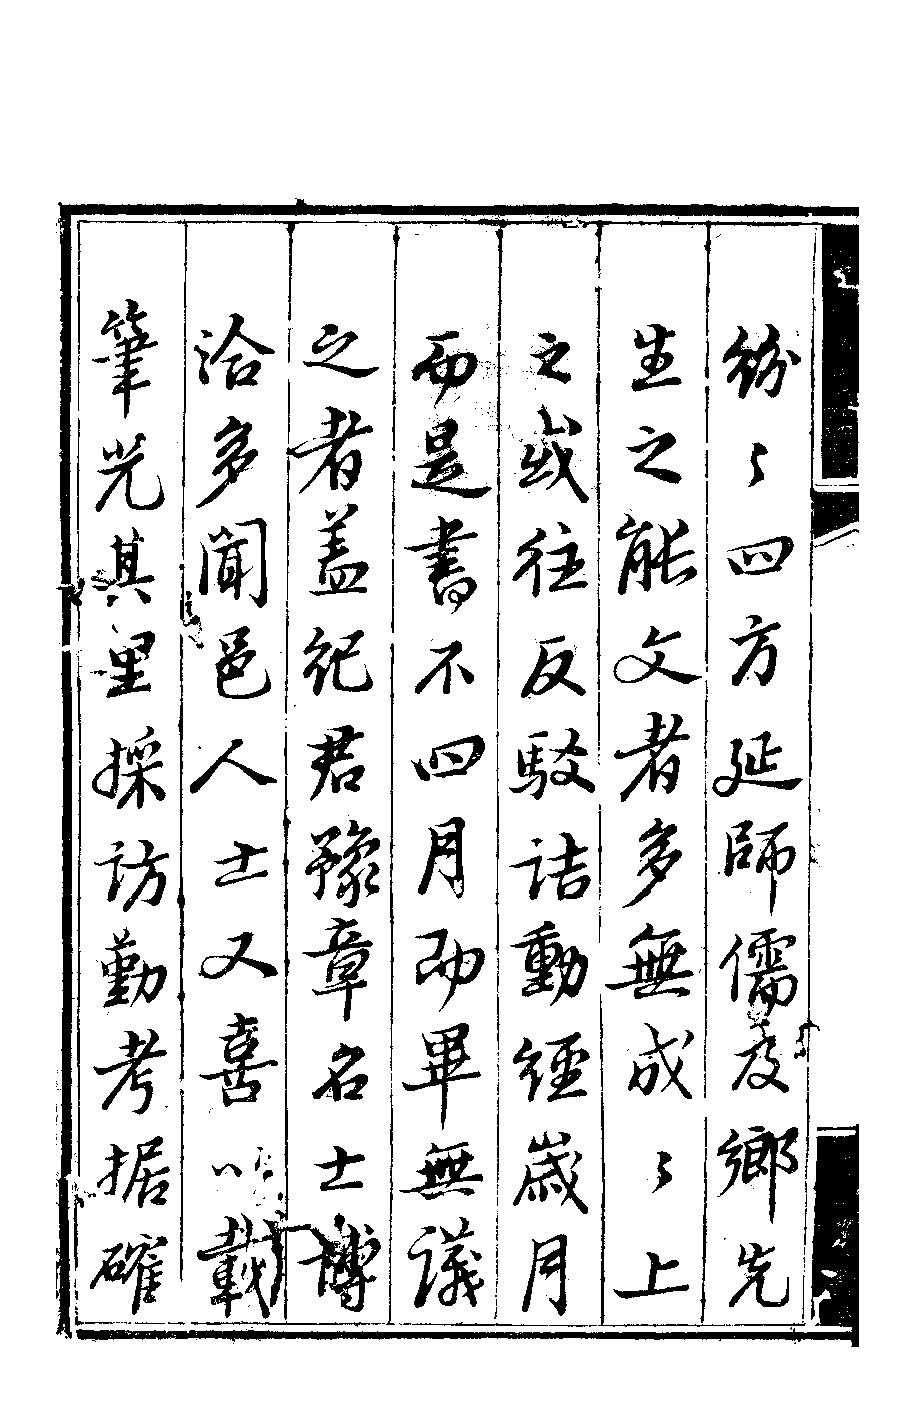 紛〻四方延師儒及鄉先
生之能文者多無成〻上
之或往反駁詰動經歲月
而是書不四月即畢無議
之者蓋紀君豫章名士博
洽多聞邑人士又喜以載
筆光其里採訪勤考据確